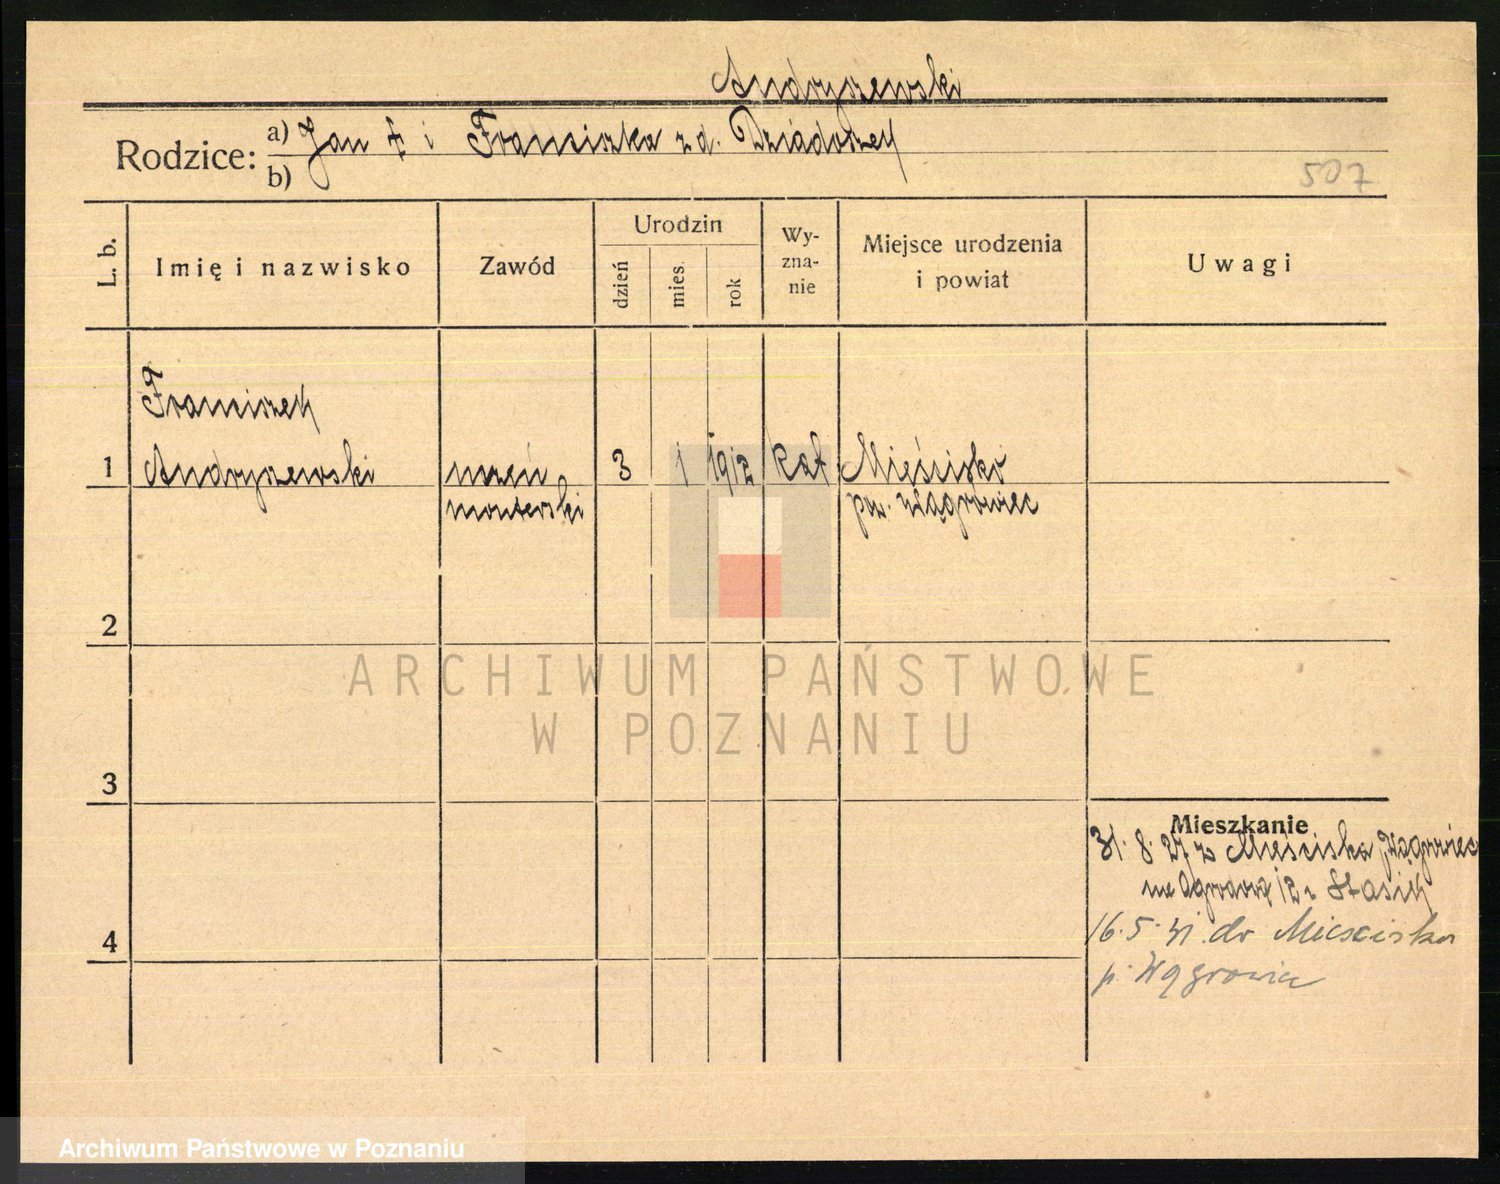 Andryszewski
Rodzice: a) Jan † i Franciszka z d. Dziadoszek
b)
507
L. b.
Imię i nazwisko
Zawód
Urodzin
dzień
mies.
rok
Wy-
zna-
nie
Miejsce urodzenia
i powiat
Uwagi
Franciszek
1 Andryszewski uczeń 3 1 1912 kat Mieścisko
monterski pow. Wągrowiec
2
ARCHIWUM PAŃSTWOWE
W POZNANIU
3
Mieszkanie
31. 8. 27. z Mieściska Wągrowiec
12 Stasik
4
16. 5. 31. do Miesciska
p. Wągrowiec
Archiwum Państwowe w Poznaniu